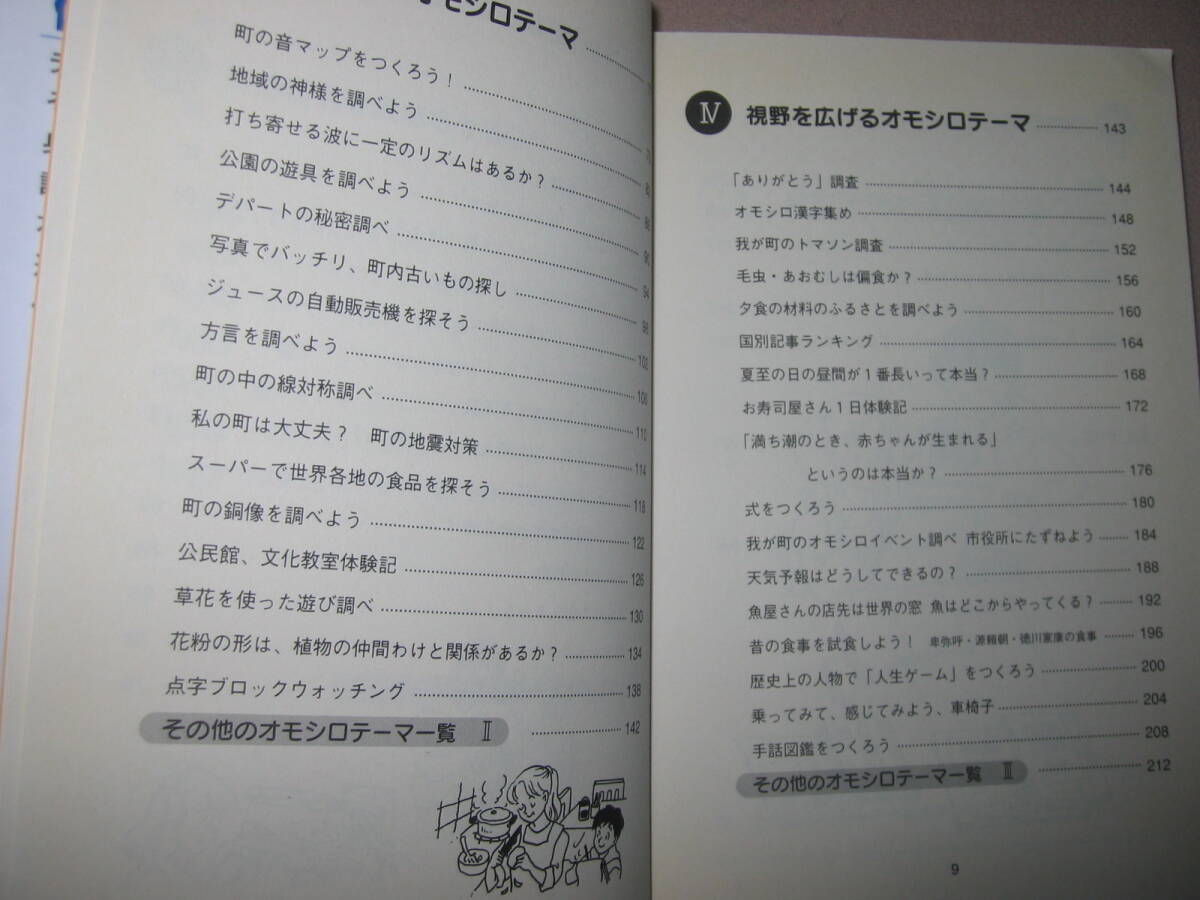 モシロテーマ
町の音マップをつくろう！
地域の神様を調べよう
打ち寄せる波に一定のリズムはあるか？
公園の遊具を調べよう 86
デパートの秘密調べ 90
写真でバッチリ、町内古いもの探し 94
ジュースの自動販売機を探そう 98
方言を調べよう 102
町の中の線対称調べ 106
私の町は大丈夫？ 町の地震対策 110
スーパーで世界各地の食品を探そう 118
町の銅像を調べよう 122
公民館、文化教室体験記 126
草花を使った遊び調べ 130
花粉の形は、植物の仲間わけと関係があるか？ 134
点字ブロックウォッチング 138
その他のオモシロテーマ一覧 Ⅱ 142
Ⅳ 視野を広げるオモシロテーマ 143
「ありがとう」調査 144
オモシロ漢字集め 148
我が町のトマソン調査 152
毛虫・あおむしは偏食か？ 156
夕食の材料のふるさとを調べよう 160
国別記事ランキング 164
夏至の日の昼間が１番長いって本当？ 168
お寿司屋さん１日体験記 172
「満ち潮のとき、赤ちゃんが生まれる」
というのは本当か？ 176
式をつくろう 180
我が町のオモシロイベント調べ 市役所にたずねよう 184
天気予報はどうしてできるの？ 188
魚屋さんの店先は世界の窓 魚はどこからやってくる？ 192
昔の食事を試食しよう！ 卑弥呼・源頼朝・徳川家康の食事 196
歴史上の人物で「人生ゲーム」をつくろう 200
乗ってみて、感じてみよう、車椅子 204
手話図鑑をつくろう 208
その他のオモシロテーマ一覧 Ⅲ 212
9